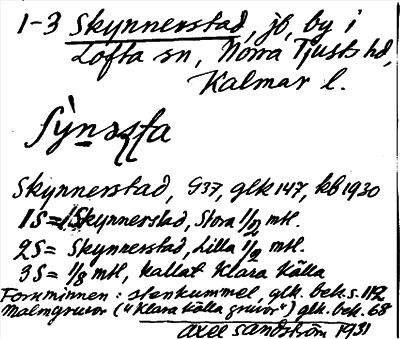 1-3 Skynnerstad, jb, by i
Lofta sn, Norra Tjusts hd,
Kalmar l.
Skynnerstad, G37, glk 147, kb 1930
1S= Skynnerstad, Stora 1/2 mtl.
2S= Skynnerstad, Lilla 1/2 mtl.
3S= 1/8 mtl, kallat Klara Källa
Fornminnen: stenkummel, glk. bek. s. 112
Malmgruvor ("Klara Källa gruvor") glk. bek. 68
Axel Sandström 1931